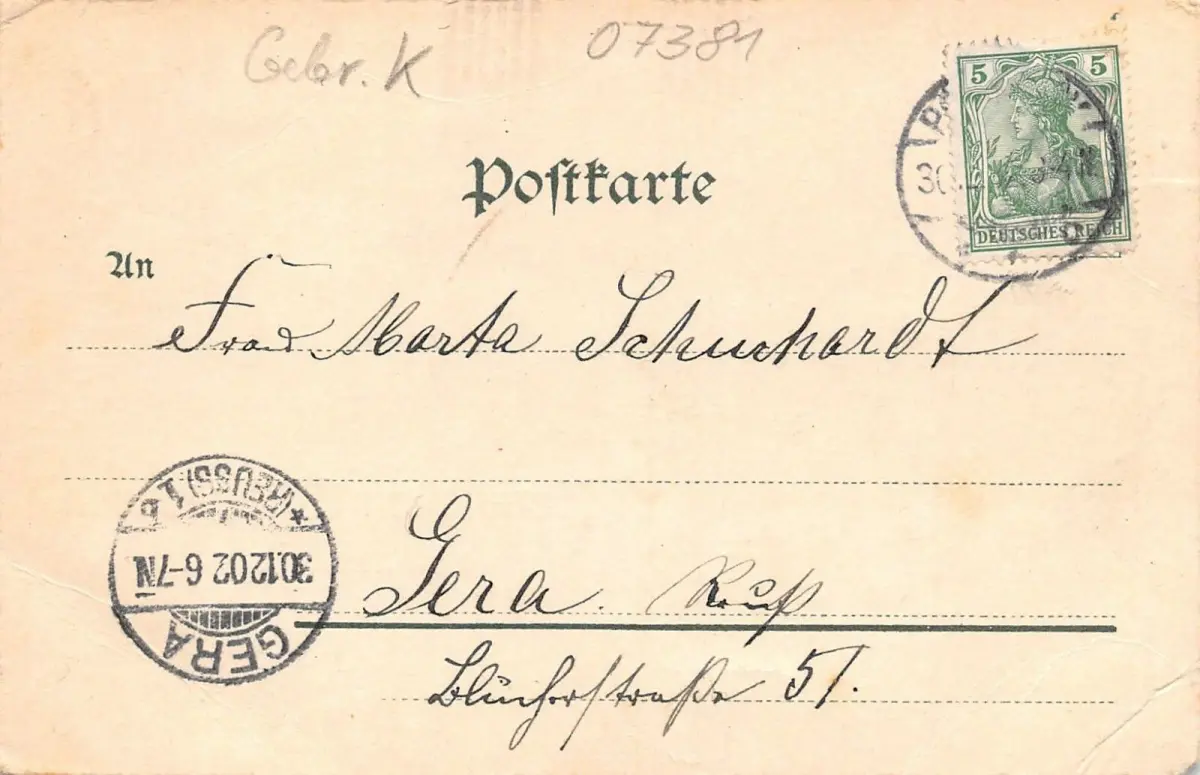 Gebr. K
07381
5 5
DEUTSCHES REICH
30. 3-4 N
Postkarte
An
Frau Marta Schuchardt
Gera. Reuß
Blücherstraße 51.
*(REUSS) 1 b
30.12.02 6-7N
GERA